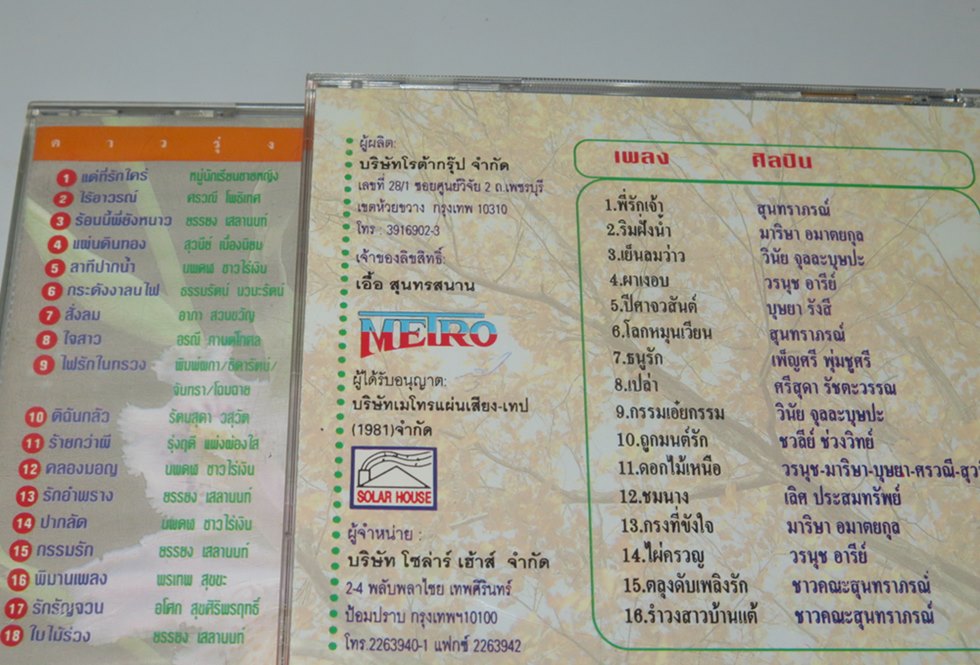 ดาวรุ่ง
1 แด่ที่รักใคร่ หมู่นักเรียนชายหญิง
2 ไร้อาวรณ์ ศรวณี โพธิเทศ
3 ร้อนนี้พี่ยังหนาว ยรรยง เสลานนท์
4 แผ่นดินทอง สุวณีช เนื่องนิยม
5 ลาทีปากน้ำ นพดฬ ชาวไร่เงิน
6 กระดังงาลนไฟ ธรรมรัตน์ นวมะรัตน์
7 สั่งลม อาภา สวนขวัญ
8 ใจสาว อรณี
9 ไฟรักในทรวง พิมพ์ผกา/ธิดารัตน์/
จันทรา/โฉมฉาย
10 ดิฉันกลัว รัตนสุดา วสุวัต
11 ร้ายกว่าผี รุ่งฤดี แพ่งผ่องใส
12 คลองมอญ นพดฬ ชาวไร่เงิน
13 รักอำพราง ยรรยง เสลานนท์
14 ปากลัด นพดฬ ชาวไร่เงิน
15 กรรมรัก ยรรยง เสลานนท์
16 พิมานเพลง พรเทพ สุขยะ
17 รักรัญจวน อโศก สุขศิริพรฤทธิ์
18 ใบไม้ร่วง ยรรยง เสลานนท์
ผู้ผลิต:
บริษัทโรต้ากรุ๊ป จำกัด
เลขที่ 28/1 ซอยศูนย์วิจัย 2 ถ.เพชรบุรี
เขตห้วยขวาง กรุงเทพ 10310
โทร : 3916902-3
เจ้าของลิขสิทธิ์:
เอื้อ สุนทรสนาน
METRO
ผู้ได้รับอนุญาต:
บริษัทเมโทรแผ่นเสียง-เทป
(1981)จำกัด
SOLAR HOUSE
ผู้จำหน่าย :
บริษัท โซล่าร์ เฮ้าส์ จำกัด
2-4 พลับพลาไชย เทพศิรินทร์
ป้อมปราบ กรุงเทพฯ10100
โทร.2263940-1 แฟกซ์ 2263942
เพลง ศิลปิน
1.พี่รักเจ้า สุนทราภรณ์
2.ริมฝั่งน้ำ มาริษา อมาตยกุล
3.เย็นลมว่าว วินัย จุลละบุษปะ
4.ผาเงอบ วรนุช อารีย์
5.ปีศาจวสันต์ บุษยา รังสี
6.โลกหมุนเวียน สุนทราภรณ์
7.ธนูรัก เพ็ญศรี พุ่มชูศรี
8.เปล่า ศรีสุดา รัชตะวรรณ
9.กรรมเอ๋ยกรรม วินัย จุลละบุษปะ
10.ถูกมนต์รัก ชวลีย์ ช่วงวิทย์
11.ดอกไม้เหนือ วรนุช-มาริษา-บุษยา-ศรวณี-สุว
12.ชมนาง เลิศ ประสมทรัพย์
13.กรงที่ขังใจ มาริษา อมาตยกุล
14.ไผ่ครวญ วรนุช อารีย์
15.ตลุงดับเพลิงรัก ชาวคณะสุนทราภรณ์
16.รำวงสาวบ้านแต้ ชาวคณะสุนทราภรณ์